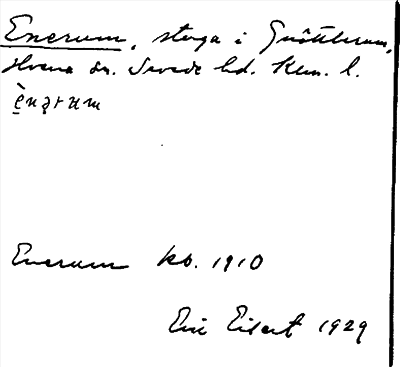 Enerum, stuga i Gnöttlerum,
Hvena sn. Sevede hd. Kalm. l.
è̱nərum
Enerum kb. 1910
Eric Elsert 1929